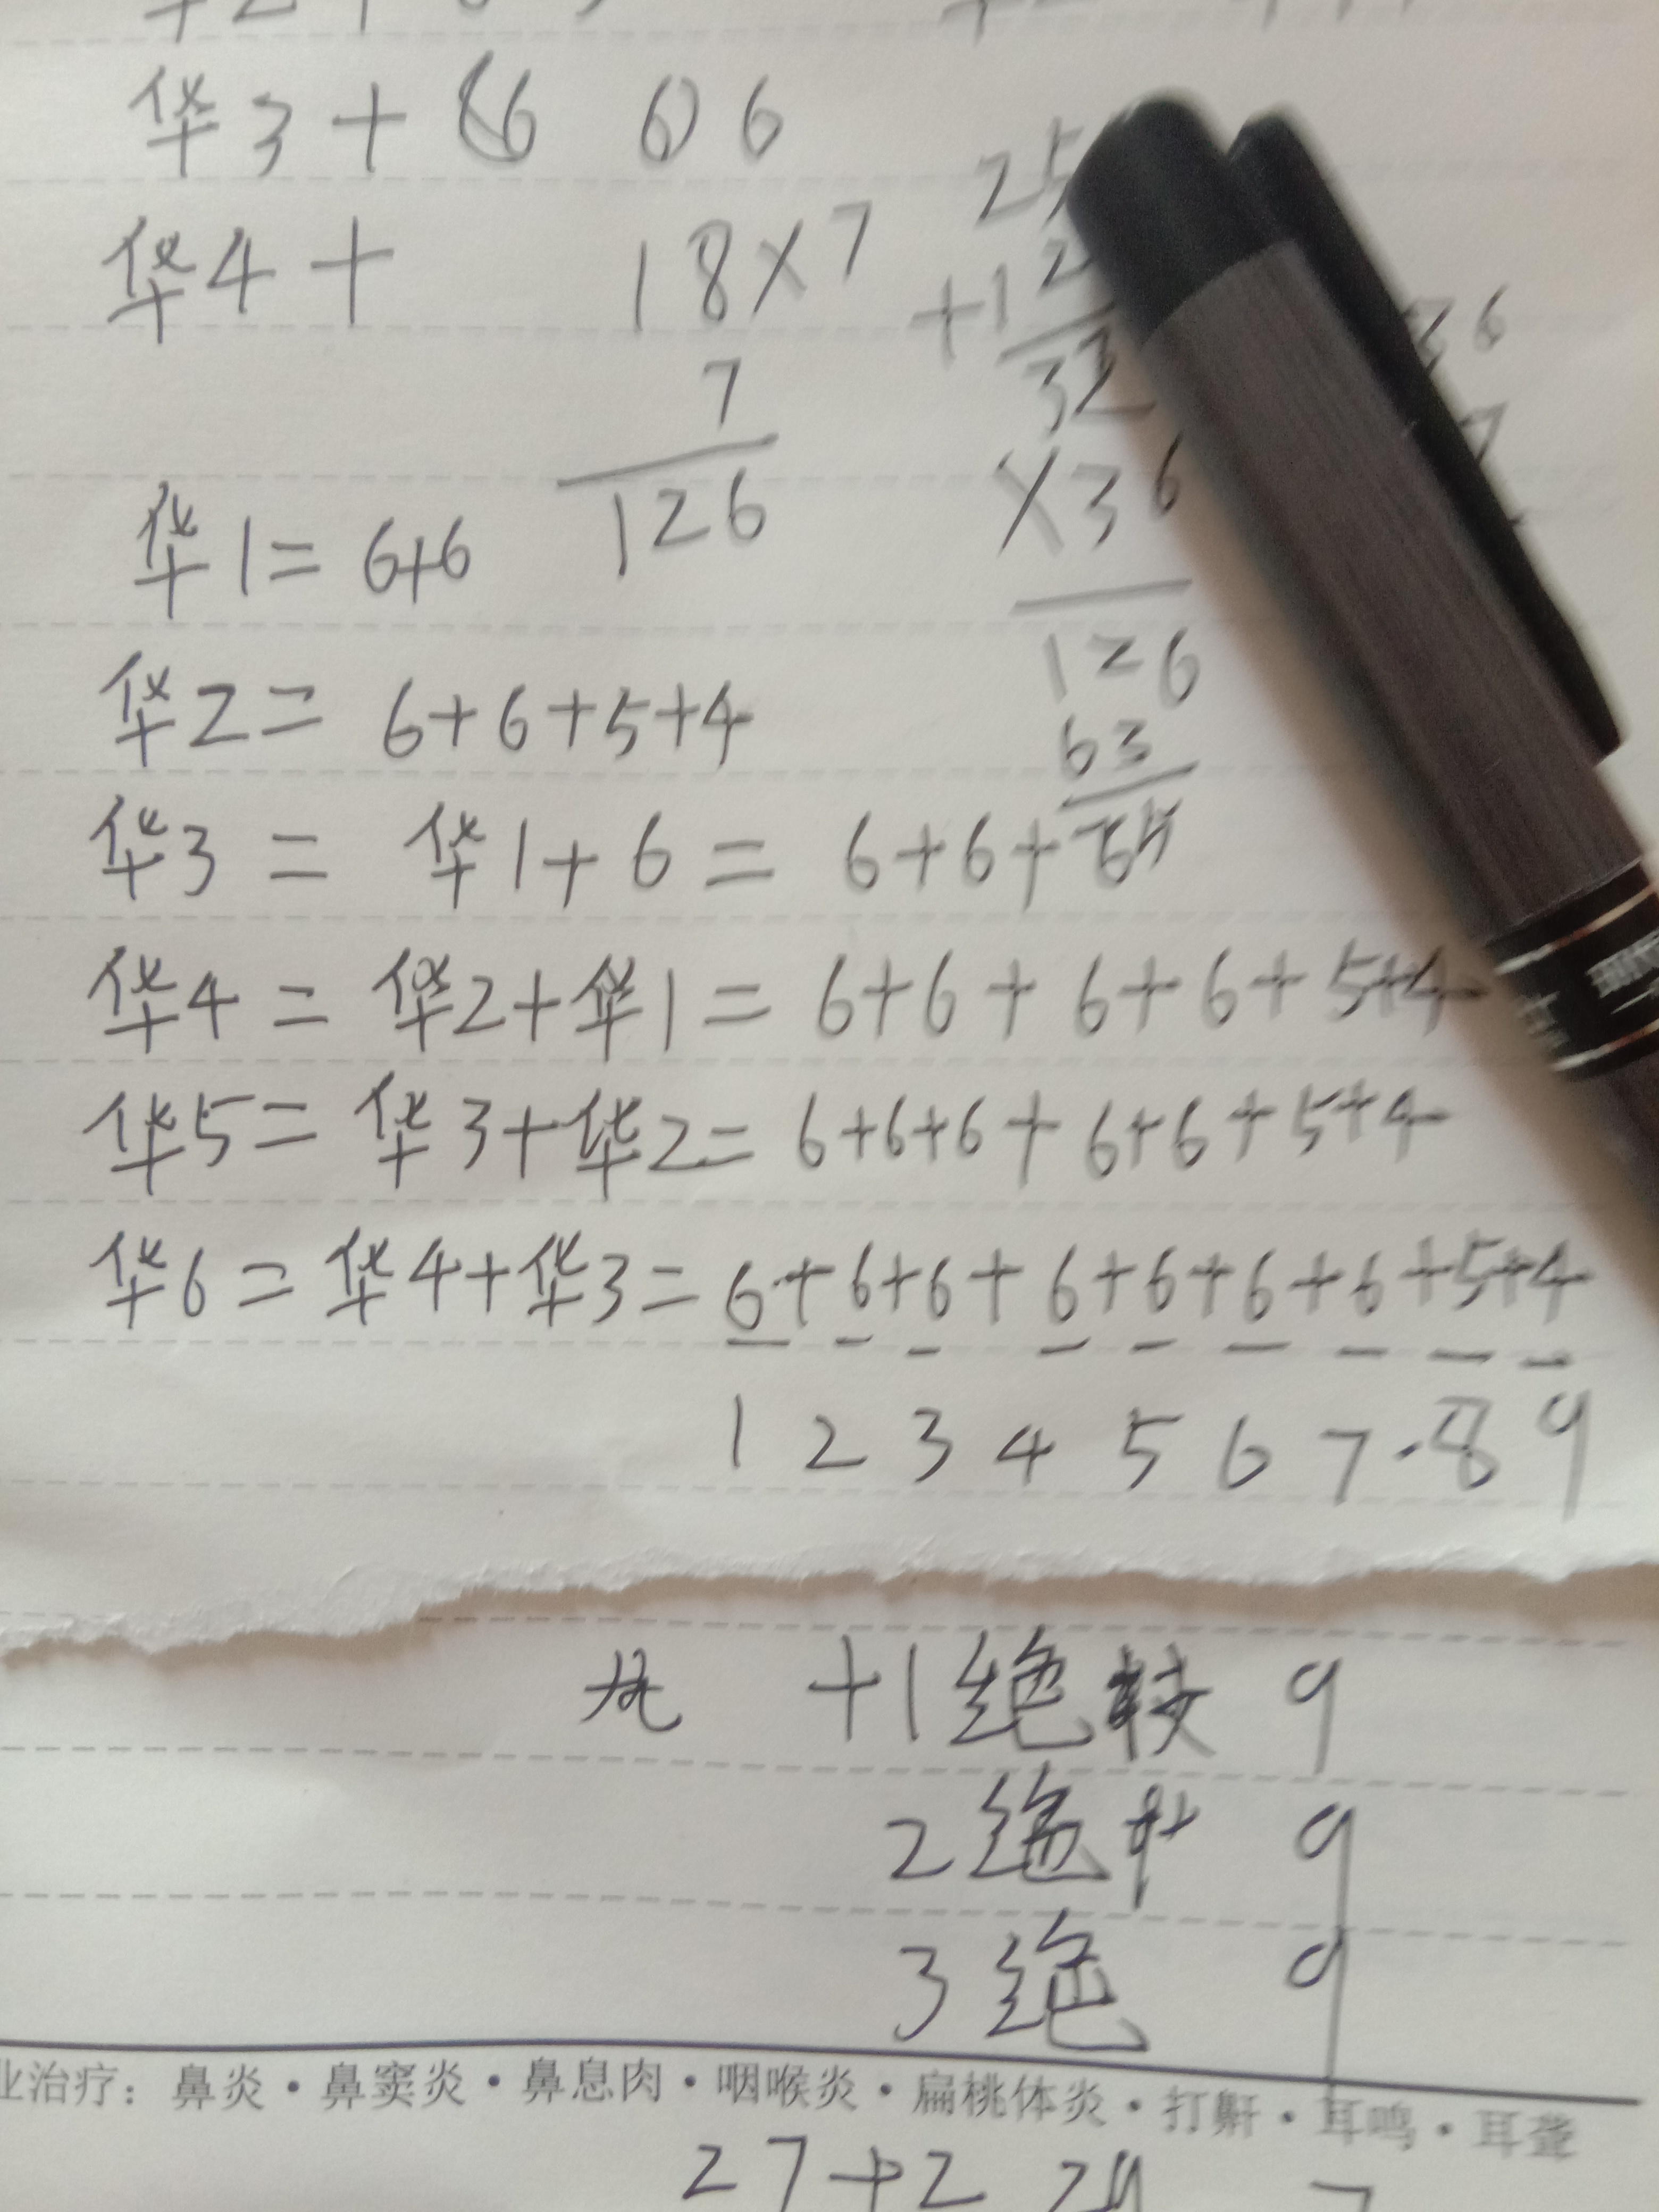 华3+86 606
华4+ 18×7
7
126
25
+12
32
×36
126
63
36
7
华1=6+6
华2=6+6+5+4
华3=华1+6=6+6+6
华4=华2+华1=6+6+6+6+5+4
华5=华3+华2=6+6+6+6+6+5+4
华6=华4+华3=6+6+6+6+6+6+6+5+4
1 2 3 4 5 6 7 8 9
+1绝技 9
2绝 9
3绝 9
业治疗：鼻炎·鼻窦炎·鼻息肉·咽喉炎·扁桃体炎·打鼾·耳鸣·耳聋
27+2 29 7